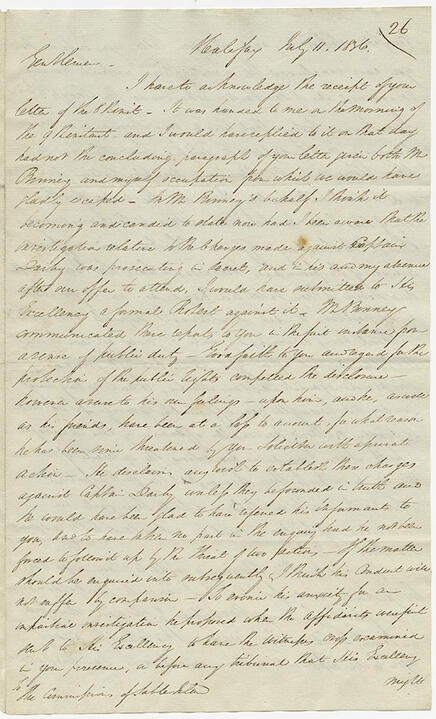 26
Halifax July 11. 1836.
Gentlemen -
I have to acknowledge the receipt of your
letter of the 8 Inst - It was handed to me on the Morning of
the 9 Instant and I would have replied to it on that day
had not the concluding paragraph of your letter given both Mr
Binney and myself occupation from which we would have
gladly escaped - In Mr Binney's behalf I think it
becoming and candid to state now had I been aware that the
investigation relative to the Charges made against Captain
Darby was prosecuting in secret, and in his and my absence
after our offer to attend, I would have submitted to His
Excellency a formal Protest against it - Mr Binney
communicated these reports to you in the first instance from
a sense of public duty - Good faith to you and regard for the
protection of the public rights compelled the disclosure -
however averse to his own feelings - upon him, and he, as well
as his friends, have been at a loss to account, for what reason
he has been since threatened by your Solicitor with a private
action - He disclaims any wish to establish those charges
against Captain Darby unless they be founded in truth and
he would have been glad to have referred his informants to
you, and to have taken no part in the enquiry had he not been
forced to follow it up by the threat of two actions - If the matter
should be enquired into subsequently I think his conduct will
not suffer by comparison - To evince his anxiety for an
impartial investigation he proposed when the affidavits were first
sent to His Excellency to have the witnesses cross examined
in your presence, or before any tribunal that His Excellency
might
To
The Commissioners of Sable Island